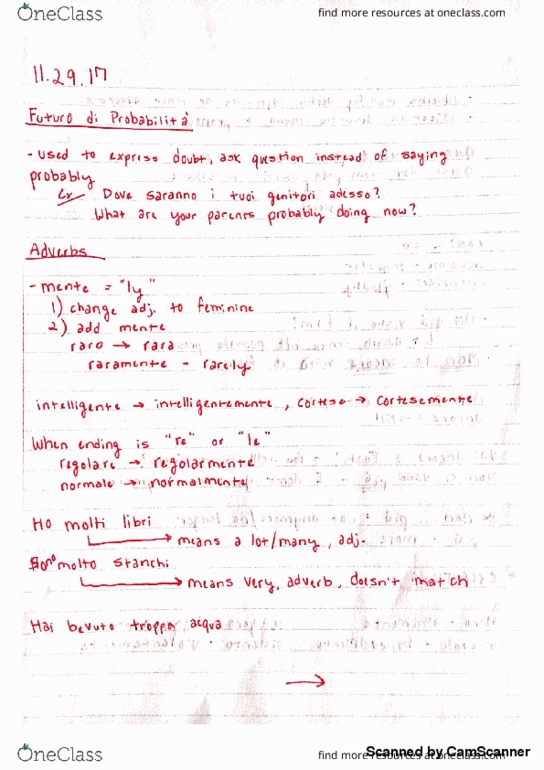 OneClass
find more resources at oneclass.com
11.29.17
Futuro di Probabilità
- used to express doubt, ask question instead of saying
probably
Ex Dove saranno i tuoi genitori adesso?
What are your parents probably doing now?
Adverbs
- mente = "ly"
1) change adj. to feminine
2) add mente
raro → rara
raramente - rarely
intelligente → intelligentemente, cortese → cortesemente
When ending is "re" or "le"
regolare → regolarmente
normale → normalmente
Ho molti libri
means a lot/many, adj.
Sono molto stanchi
means very, adverb, doesn't match
Hai bevuto troppa acqua
→
OneClass
find more resources at oneclass.com
Scanned by CamScanner